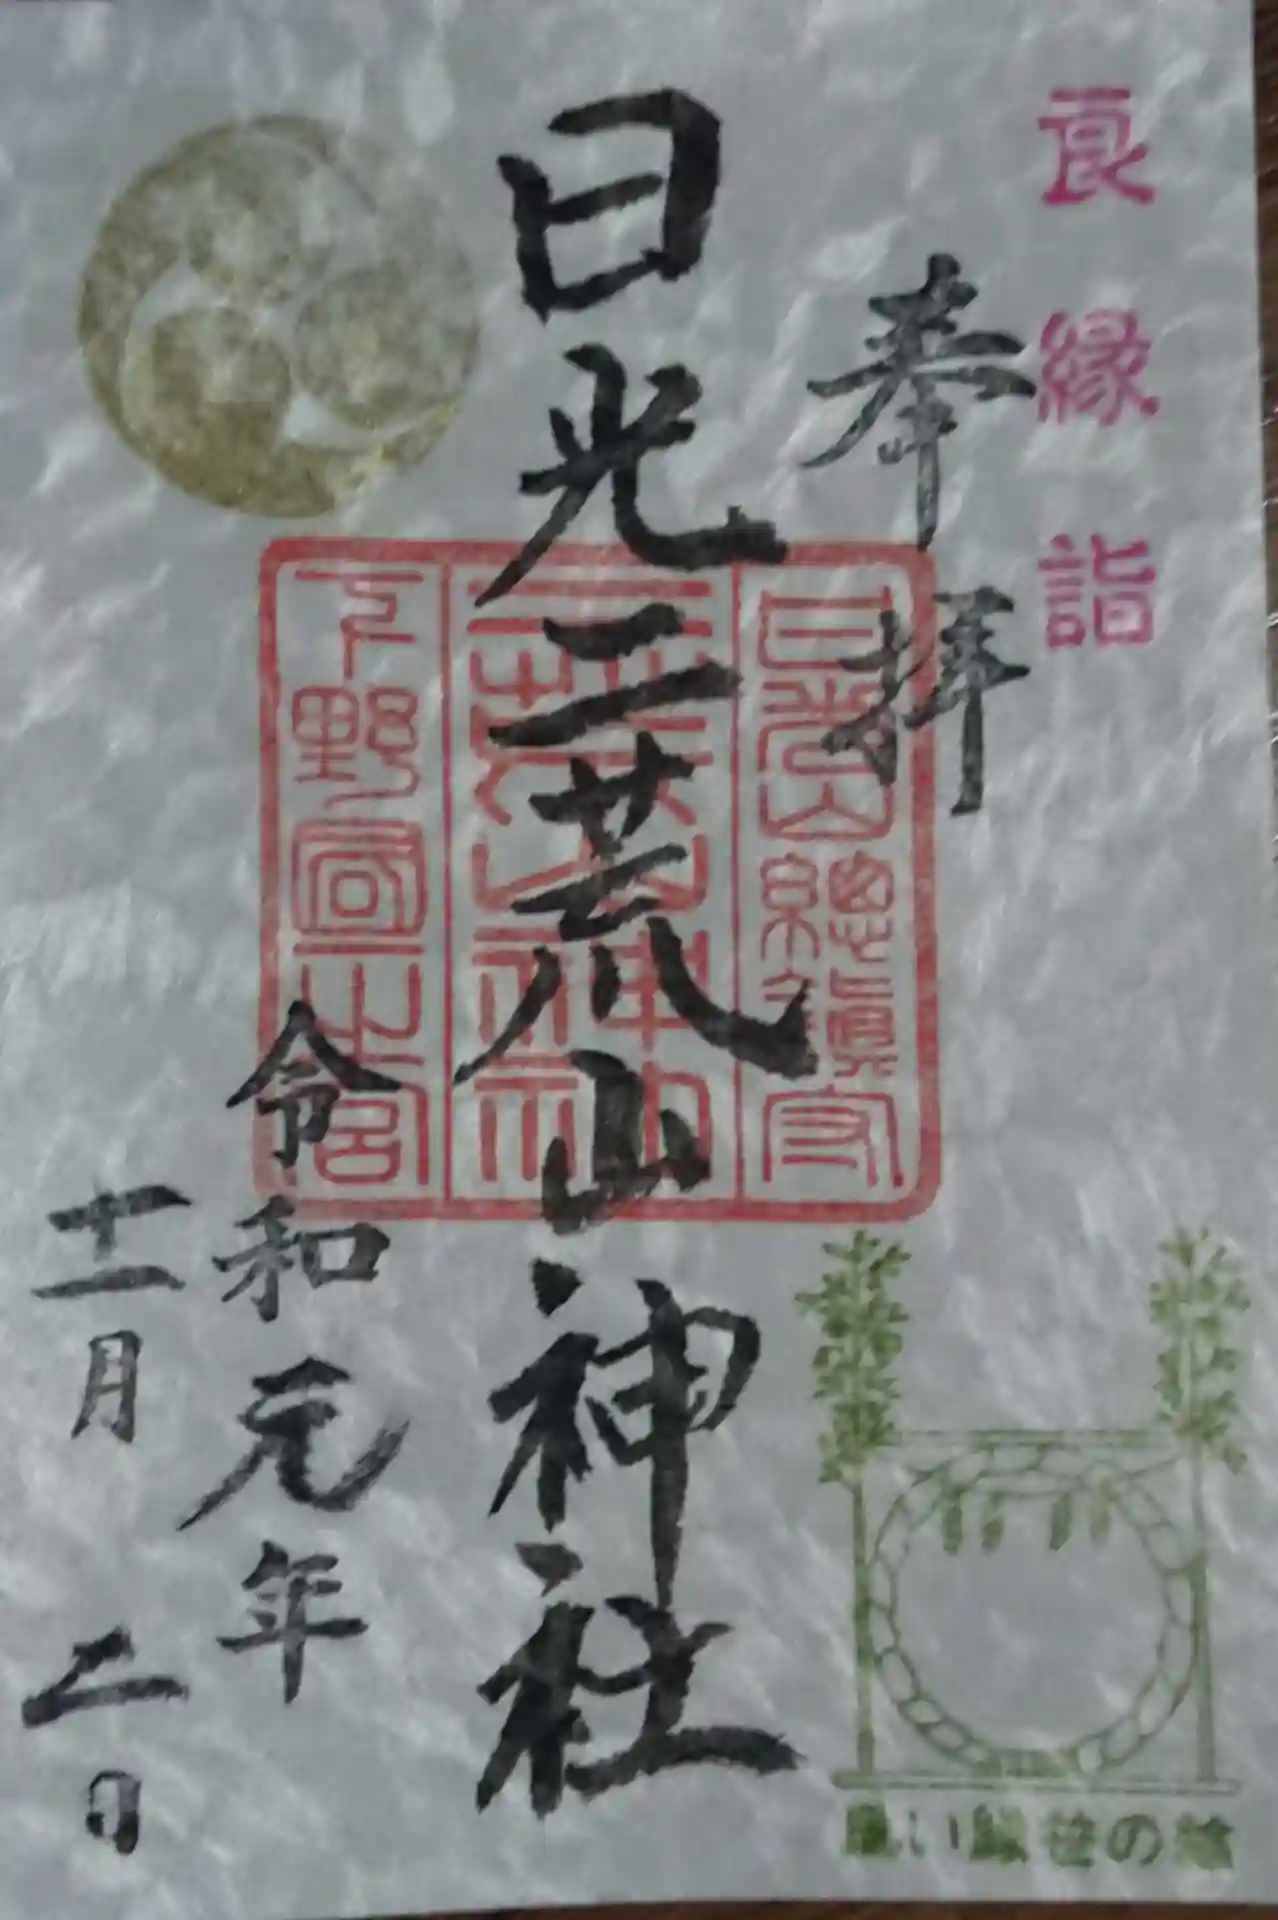 良縁詣
奉拝
日光山總鎮守
日光二荒山神社
二荒山神社
下野国一之宮
令和元年
十一月二日
良い縁笹の輪